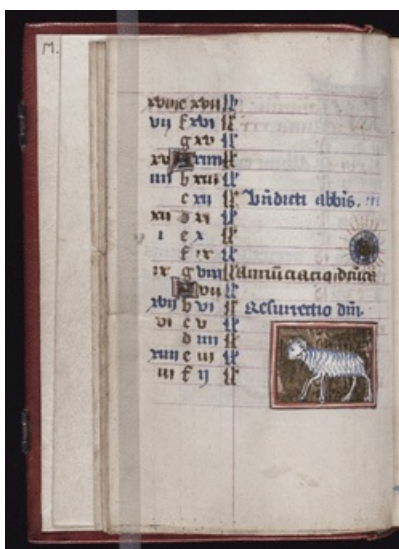 M.
xviii e xvii kl
vii f xvi kl
g xv kl
xv A xiiii kl
iiii b xiii kl
c xii kl Bñdicti abbis.
xii d xi kl
i e x kl
f ix kl
ix g viii kl Annūciacio dñica
A vii kl
xvii b vi kl Resurrectio dñi.
vi c v kl
d iiii kl
xiiii e iii kl
iii f ii kl